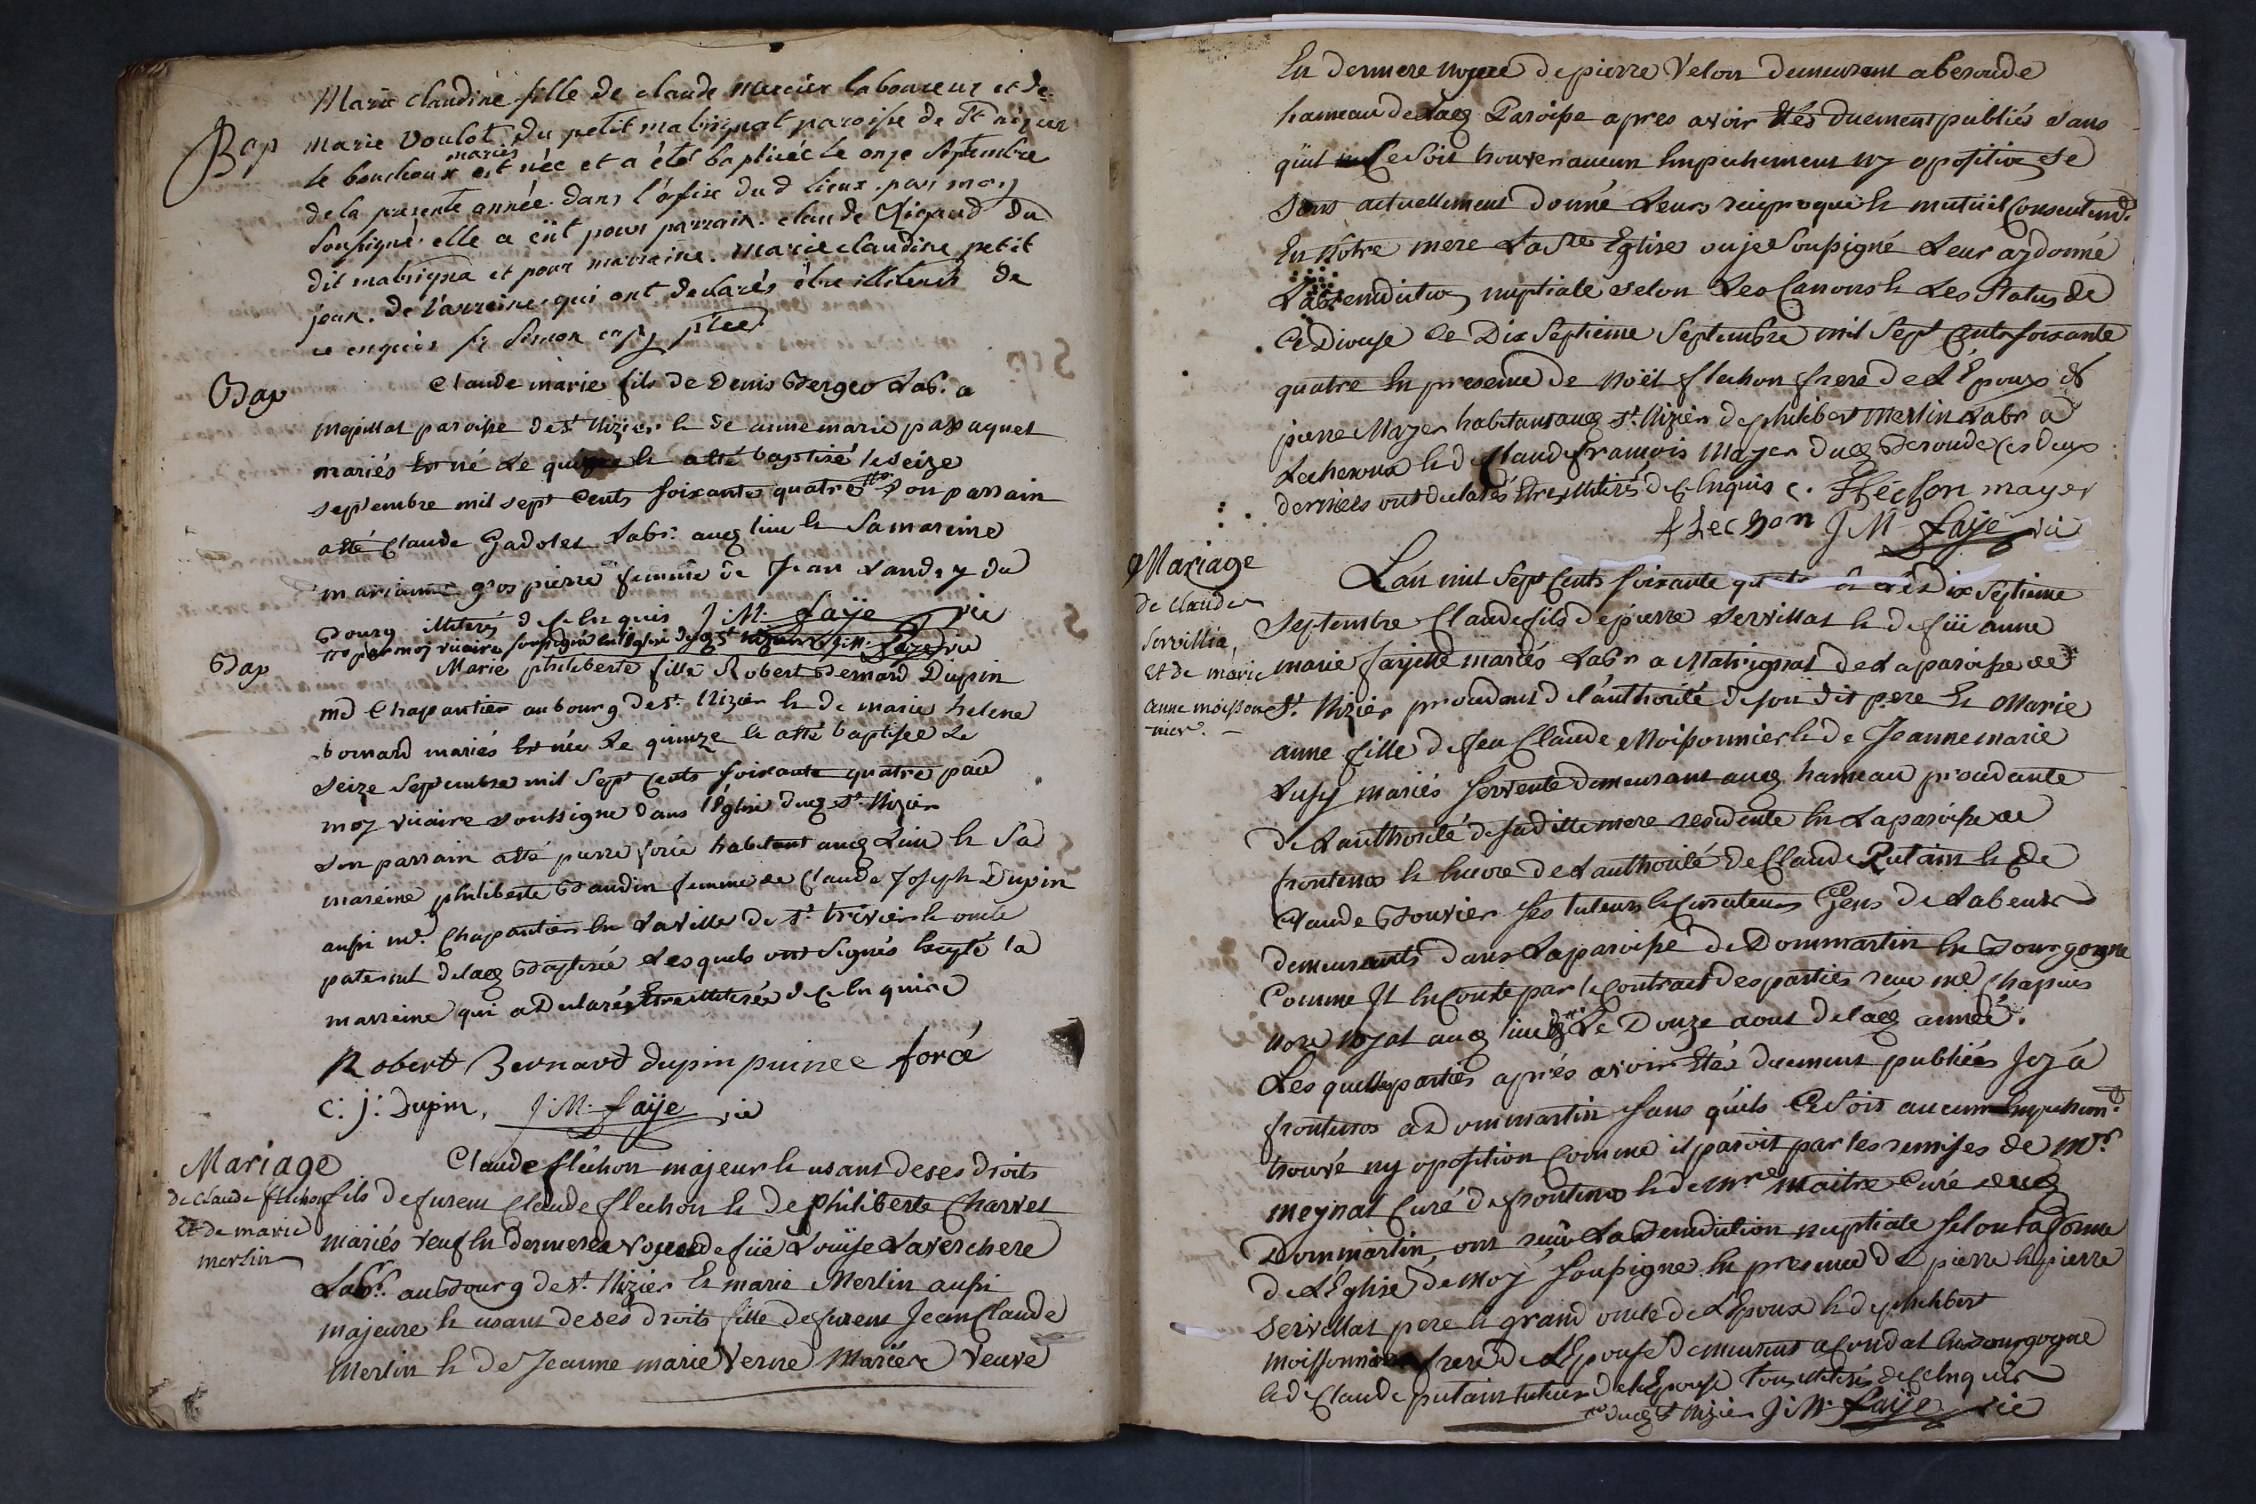 Marie claudine fille de claude mercier laboureur et de
Bap
marie voulot du petit matrignat paroisse de St nizier
le bouchoux mariés est née et a été baptisée le onze septembre
de la presente année dans l'eglise dud lieux par moy
soussigné elle a eüt pour parrain claude Rigaud du
dit matrigna et pour marraine marie claudine petit
jean de varenne qui ont declarés être illiterés de
ce enquis
Bap
Claude marie fils de Denis Berger Labr. a
mepillat paroisse de st Nizier & de anne marie passaquet
mariés est né le quinze & atté baptisé le seize
septembre mil sept cents soixante quatre son parrain
atté Claude Gadolet Labr. audt lieu & sa mareine
marianne gros pierre femme de Jean Landry du
Bourg illiterés de ce enquis J. M. Faÿe vic
par moy vicaire soussigné en l'eglise dudt st nizier J. M. Faÿe vic
Bap
Marie philiberte fille Robert Bernard Dupin
md Chapantier au bourg de st Nizier & de marie helene
bornard mariés est née le quinze & atté baptisée le
seize septembre mil sept cents soixante quatre par
moy vicaire soussigné dans l'Eglise dudt st Nizier
son parrain atté pierre foricé habitant audt Lieu & sa
mareine philiberte Baudin femme de Claude Joseph Dupin
aussi md. Chapantier en la ville de st trivier & oncle
paternel de ladt Baptisée Lesquels ont signés Excepté la
marreine qui a Declarés Etre illiterée de ce enquise
Robert Bernard dupin puinee foricé
C: j: Dupin, J. M. Faÿe vic
Mariage
de Claude Flechon
Et de marie
merlin
Claude flêchon majeur & usant de ses droits
fils defurent Claude flechon & de philiberte Charvet
mariés veuf en derniere voyee defüë Loüise Laverchere
Labr. au Bourg de st Nizier Et marie Merlin aussi
majeure & usant de ses droits fille defurent Jean Claude
Merlin & de Jeanne marie Verne Mariés veuve
En derniere voyee de pierre Velon demeurant a besoude
hameau de ladt Paroisse apres avoir Etés duement publiés sans
quil ce soit trouver aucun Empechement ny oposition se
sont actuellement donné Leurs reciproque & mutüel consentemt.
En Notre mere La Ste Eglise ou je soussigné Leur ay donné
La benediction nuptiale selon Les Canons & Les Status de
Ce Diocese le Dix Septieme Septembre mil sept cents soixante
quatre En presence de Noël flechon frere de L'Epoux &
pierre Mayer habitants audt st. Nizier de philibert Merlin Labr a
Lecheroux & de Claude françois Mayer dudt Besoude Ces deux
derniers ont declarés Etre illiterés de ce Enquis c. Fléchon mayer
flechon J M Faÿe vic
Mariage
de Claude
Servillia
Et de marie
anne moisson
nier.
L'an mil sept cents soixante & le dix septieme
Septembre Claude fils de pierre servillat & defüë anne
marie fayolle mariés Labr a Matrignat de La paroisse de
St. Nizier procedant de l'authorité de son dit pere Et Marie
anne fille de feu Claude Moissonnier & de Jeanne marie
Lusy mariés servente demeurant audt hameau procedante
de L'authorité de sa ditte mere residente En La paroisse de
frontenox & Encore de L'authorité de Claude Putain & de
Claude Bouvier ses tuteurs & curateurs Gens de Labeurs
demeurants dans La paroisse de Dommartin En Bourgogne
Comme Il En Conste par le Contract des parties reçu me Chapuis
nore royal audt lieu Le Douze aout de ladt année.
Lesquelles parties aprés avoir Etés duement publiées Icy a
frontenox a dommartin sans qüels Ce soit aucun Empechemt
trouvé ny oposition comme il paroit par les remises de Mr.
meynal Curé de frontenox & de mre maitre Curé dudt
Dommartin, ont reçu La Benediction nuptiale selon la forme
de L'Eglise de Moy soussigné En presence de pierre & pierre
servillat pere & grand oncle de L'Epoux & de philibert
moissonnier frere de L'Epouse Demeurant a Condal En Bourgogne
& de Claude putain tuteur de L'Epouse Tous illiterés de ce Enquis
dudt st Nizier J. M. Faÿe vic